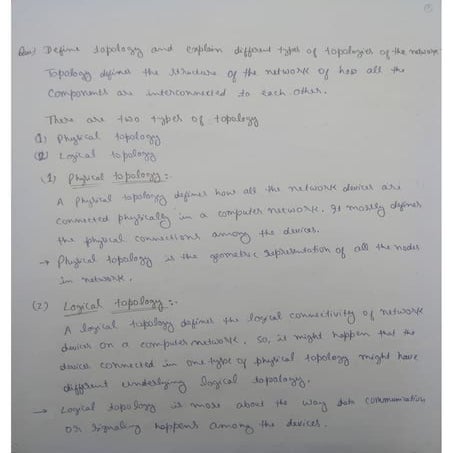 ①
Ques:1 Define topology and explain different types of topologies of the network
Topology defines the structure of the network of how all the
components are interconnected to each other.
There are two types of topology
(1) Physical topology
(2) Logical topology
(1) Physical topology:-
A Physical topology defines how all the network devices are
connected physically in a computer network. It mostly defines
the physical connections among the devices.
→ Physical topology is the geometric representation of all the nodes
in network.
(2) Logical topology:-
A logical topology defines the logical connectivity of network
devices on a computer network. So, it might happen that the
devices connected in one type of physical topology might have
different underlying logical topology.
→ Logical topology is more about the way data communication
or signaling happens among the devices.